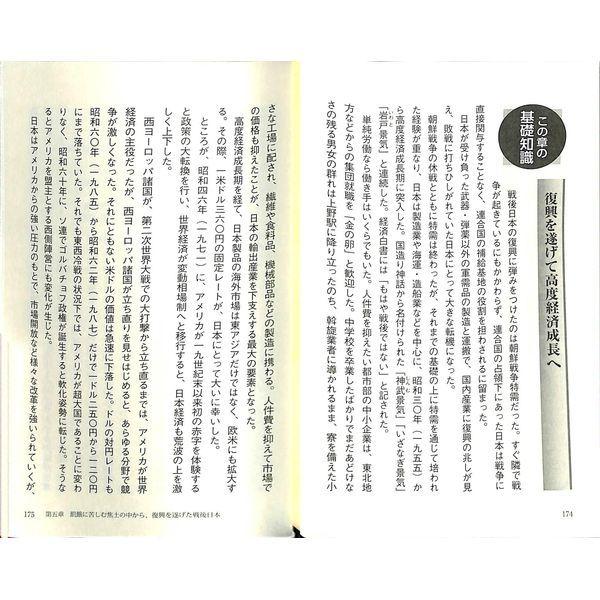 この章の
基礎知識
復興を遂げて高度経済成長へ
戦後日本の復興に弾みをつけたのは朝鮮戦争特需だった。すぐ隣で戦
争が起きているにもかかわらず、連合国の占領下にあった日本は戦争に
直接関与することなく、連合国の補給基地の役割を担わされるに留まった。
日本が受け負った武器・弾薬以外の軍需品の製造と運搬で、国内産業に復興の兆しが見
え、敗戦に打ちひしがれていた日本にとって大きな転機になった。
朝鮮戦争の休戦とともに特需は終わったが、それまでの基礎の上に特需を通じて培われ
た経験が重なり、日本は製造業や海運・造船業などを中心に、昭和三〇年(一九五五)か
ら高度経済成長期に突入した。国造り神話から名付けられた「神武景気」「いざなぎ景気」
「岩戸景気」と連続した。経済白書には「もはや戦後ではない」と記された。
単純労働なら働き手はいくらでもいた。人件費を抑えたい都市部の中小企業は、東北地
方などからの集団就職を「金の卵」と歓迎した。中学校を卒業したばかりでまだあどけな
さの残る男女の群れは上野駅に降り立ったのち、斡旋業者に導かれるまま、寮を備えた小
174
さな工場に配され、繊維や食料品、機械部品などの製造に携わる。人件費を抑えて市場で
の価格も抑えたことが、日本の輸出産業を下支えする最大の要素となった。
高度経済成長期を経て、日本製品の海外市場は東アジアだけではなく、欧米にも拡大す
る。その際、一米ドル三六〇円の固定レートが、日本にとって大いに幸いした。
ところが、昭和四六年(一九七一)に、アメリカが一九世紀末以来初の赤字を体験する
と政策の大転換を行い、世界経済が変動相場制へと移行すると、日本経済も荒波の上を激
しく上下した。
西ヨーロッパ諸国が、第二次世界大戦での大打撃から立ち直るまでは、アメリカが世界
経済の主役だったが、西ヨーロッパ諸国が立ち直りを見せはじめると、あらゆる分野で競
争が激しくなった。それにともない米ドルの価値は急速に下落した。ドルの対円レートも
昭和六〇年(一九八五)から昭和六二年(一九八七)だけで一ドル二五〇円から一二〇円
にまで落ちていた。それでも東西冷戦の状況下では、アメリカが超大国であることに変わ
りなく、昭和六十年に、ソ連でゴルバチョフ政権が誕生すると軟化姿勢に転じた。そうな
るとアメリカを盟主とする西側陣営にも変化が生じた。
日本はアメリカからの強い圧力のもとで、市場開放など様々な改革を強いられていくが、
175 第五章 飢餓に苦しむ焦土の中から、復興を遂げた戦後日本